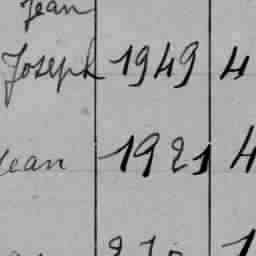 Jean
Joseph 1949 4
Jean 1921 4